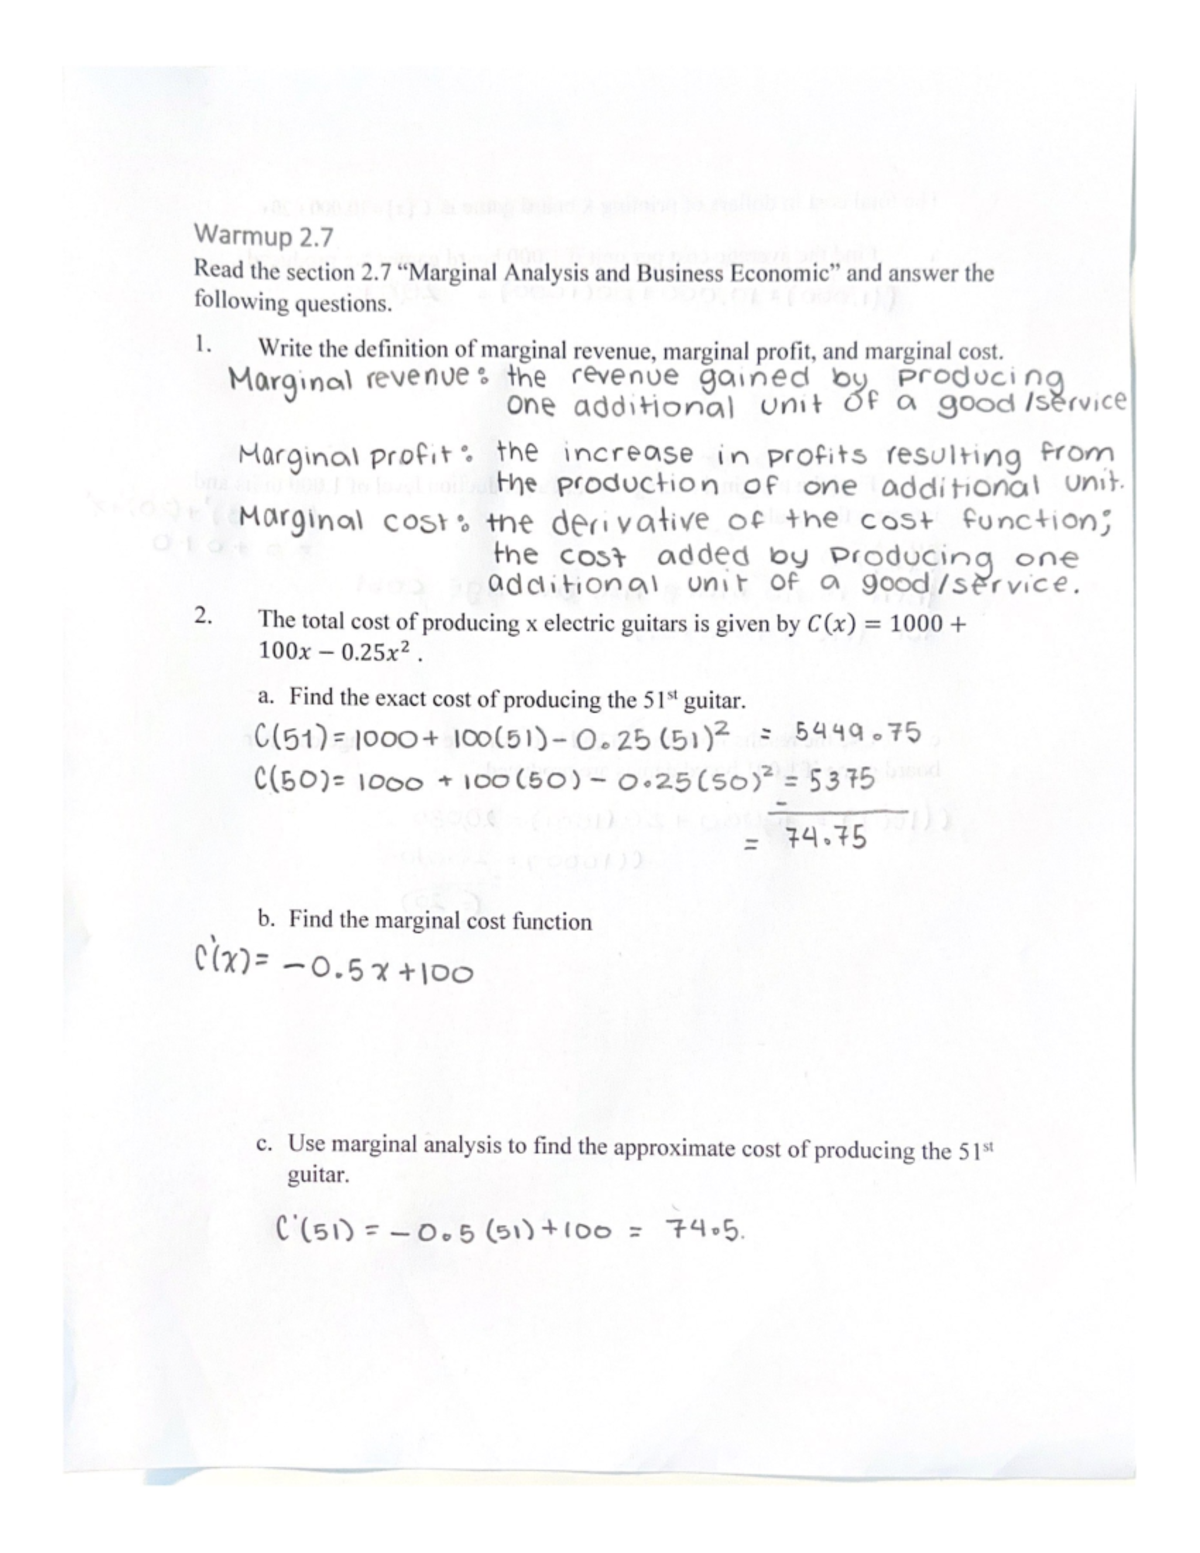 Warmup 2.7
Read the section 2.7 “Marginal Analysis and Business Economic” and answer the
following questions.
1. Write the definition of marginal revenue, marginal profit, and marginal cost.
Marginal revenue: the revenue gained by producing
one additional unit of a good/service
Marginal profit: the increase in profits resulting from
the production of one additional unit.
Marginal cost: the derivative of the cost function;
the cost added by producing one
additional unit of a good/service.
2. The total cost of producing x electric guitars is given by C(x) = 1000 +
100x − 0.25x² .
a. Find the exact cost of producing the 51st guitar.
C(51)=1000+100(51)-0.25(51)² = 5449.75
C(50)= 1000 + 100(50) - 0.25(50)² = 5375
-
= 74.75
b. Find the marginal cost function
C'(x)= -0.5x+100
c. Use marginal analysis to find the approximate cost of producing the 51st
guitar.
C'(51) = -0.5(51)+100 = 74.5.